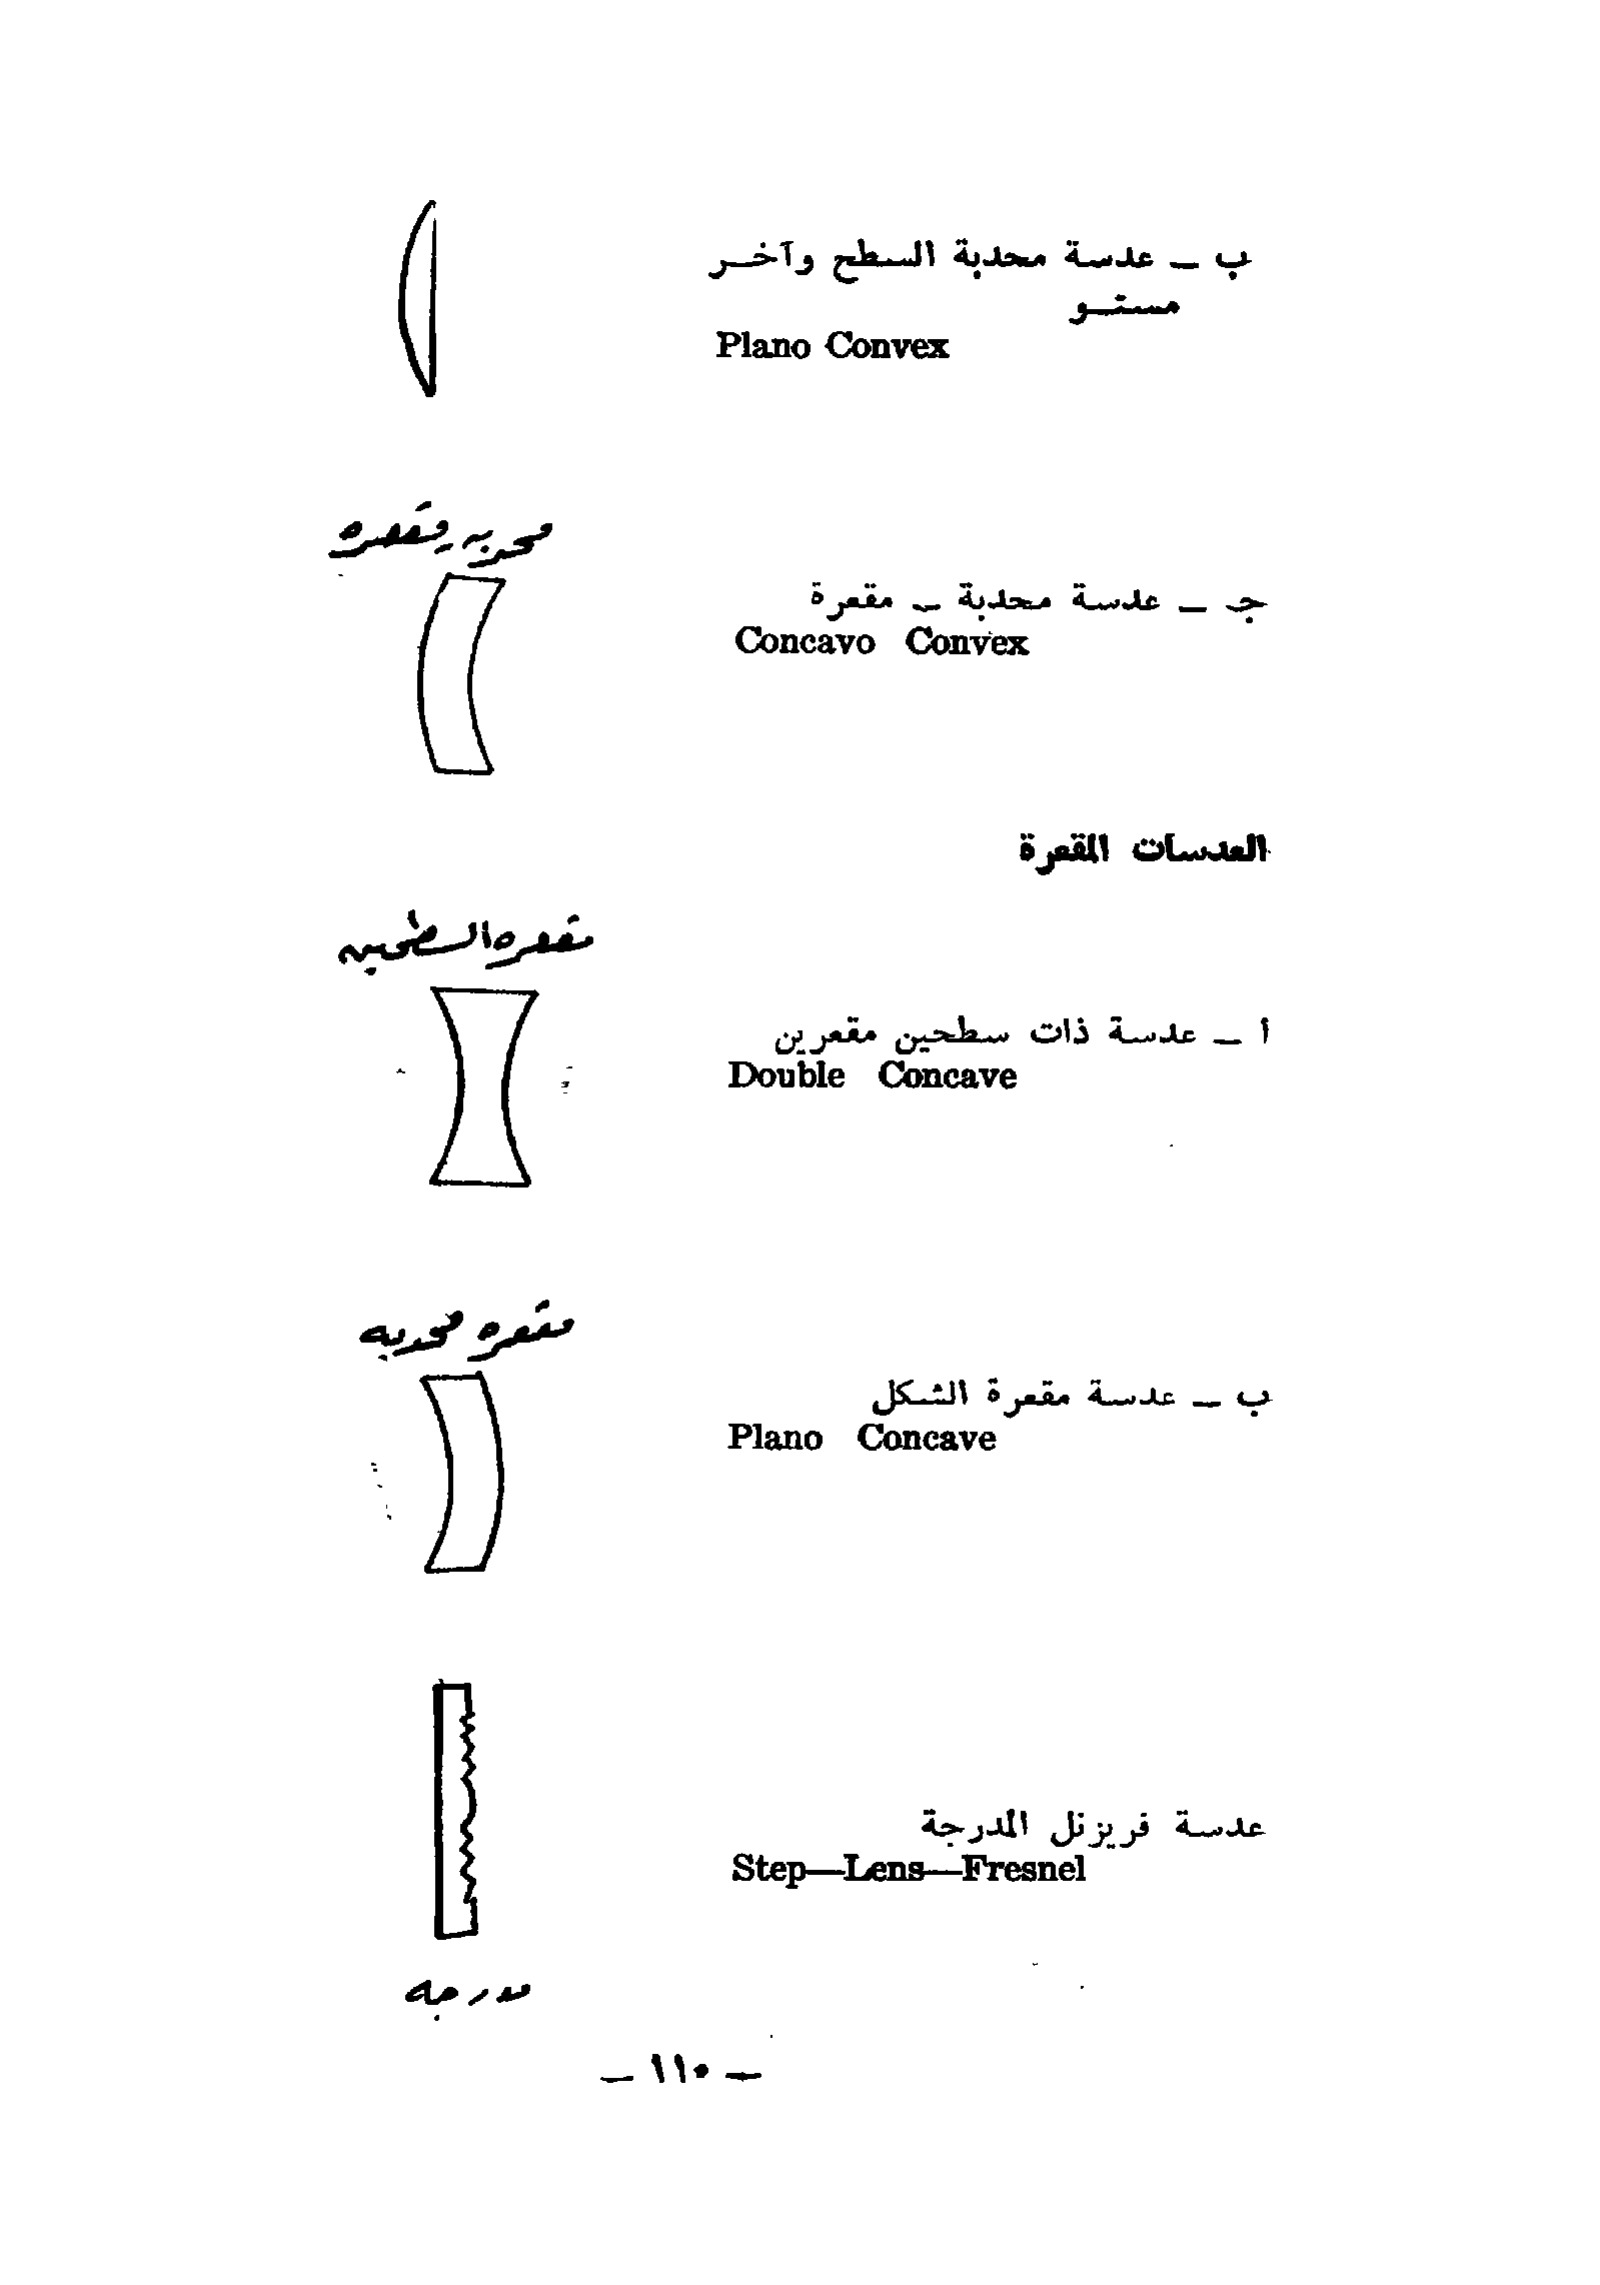 ب ـ عدسة محدبة السطح وآخر
مستو
Plano Convex
محدبه مقعره
جـ ـ عدسة محدبة ـ مقعرة
Concavo Convex
العدسات المقعرة
مقعره السطحين
أ ـ عدسة ذات سطحين مقعرين
Double Concave
مقعره محدبه
ب ـ عدسة مقعرة الشكل
Plano Concave
عدسة فريزنل المدرجة
Step—Lens—Fresnel
مدرجه
ـ ١١٠ ـ